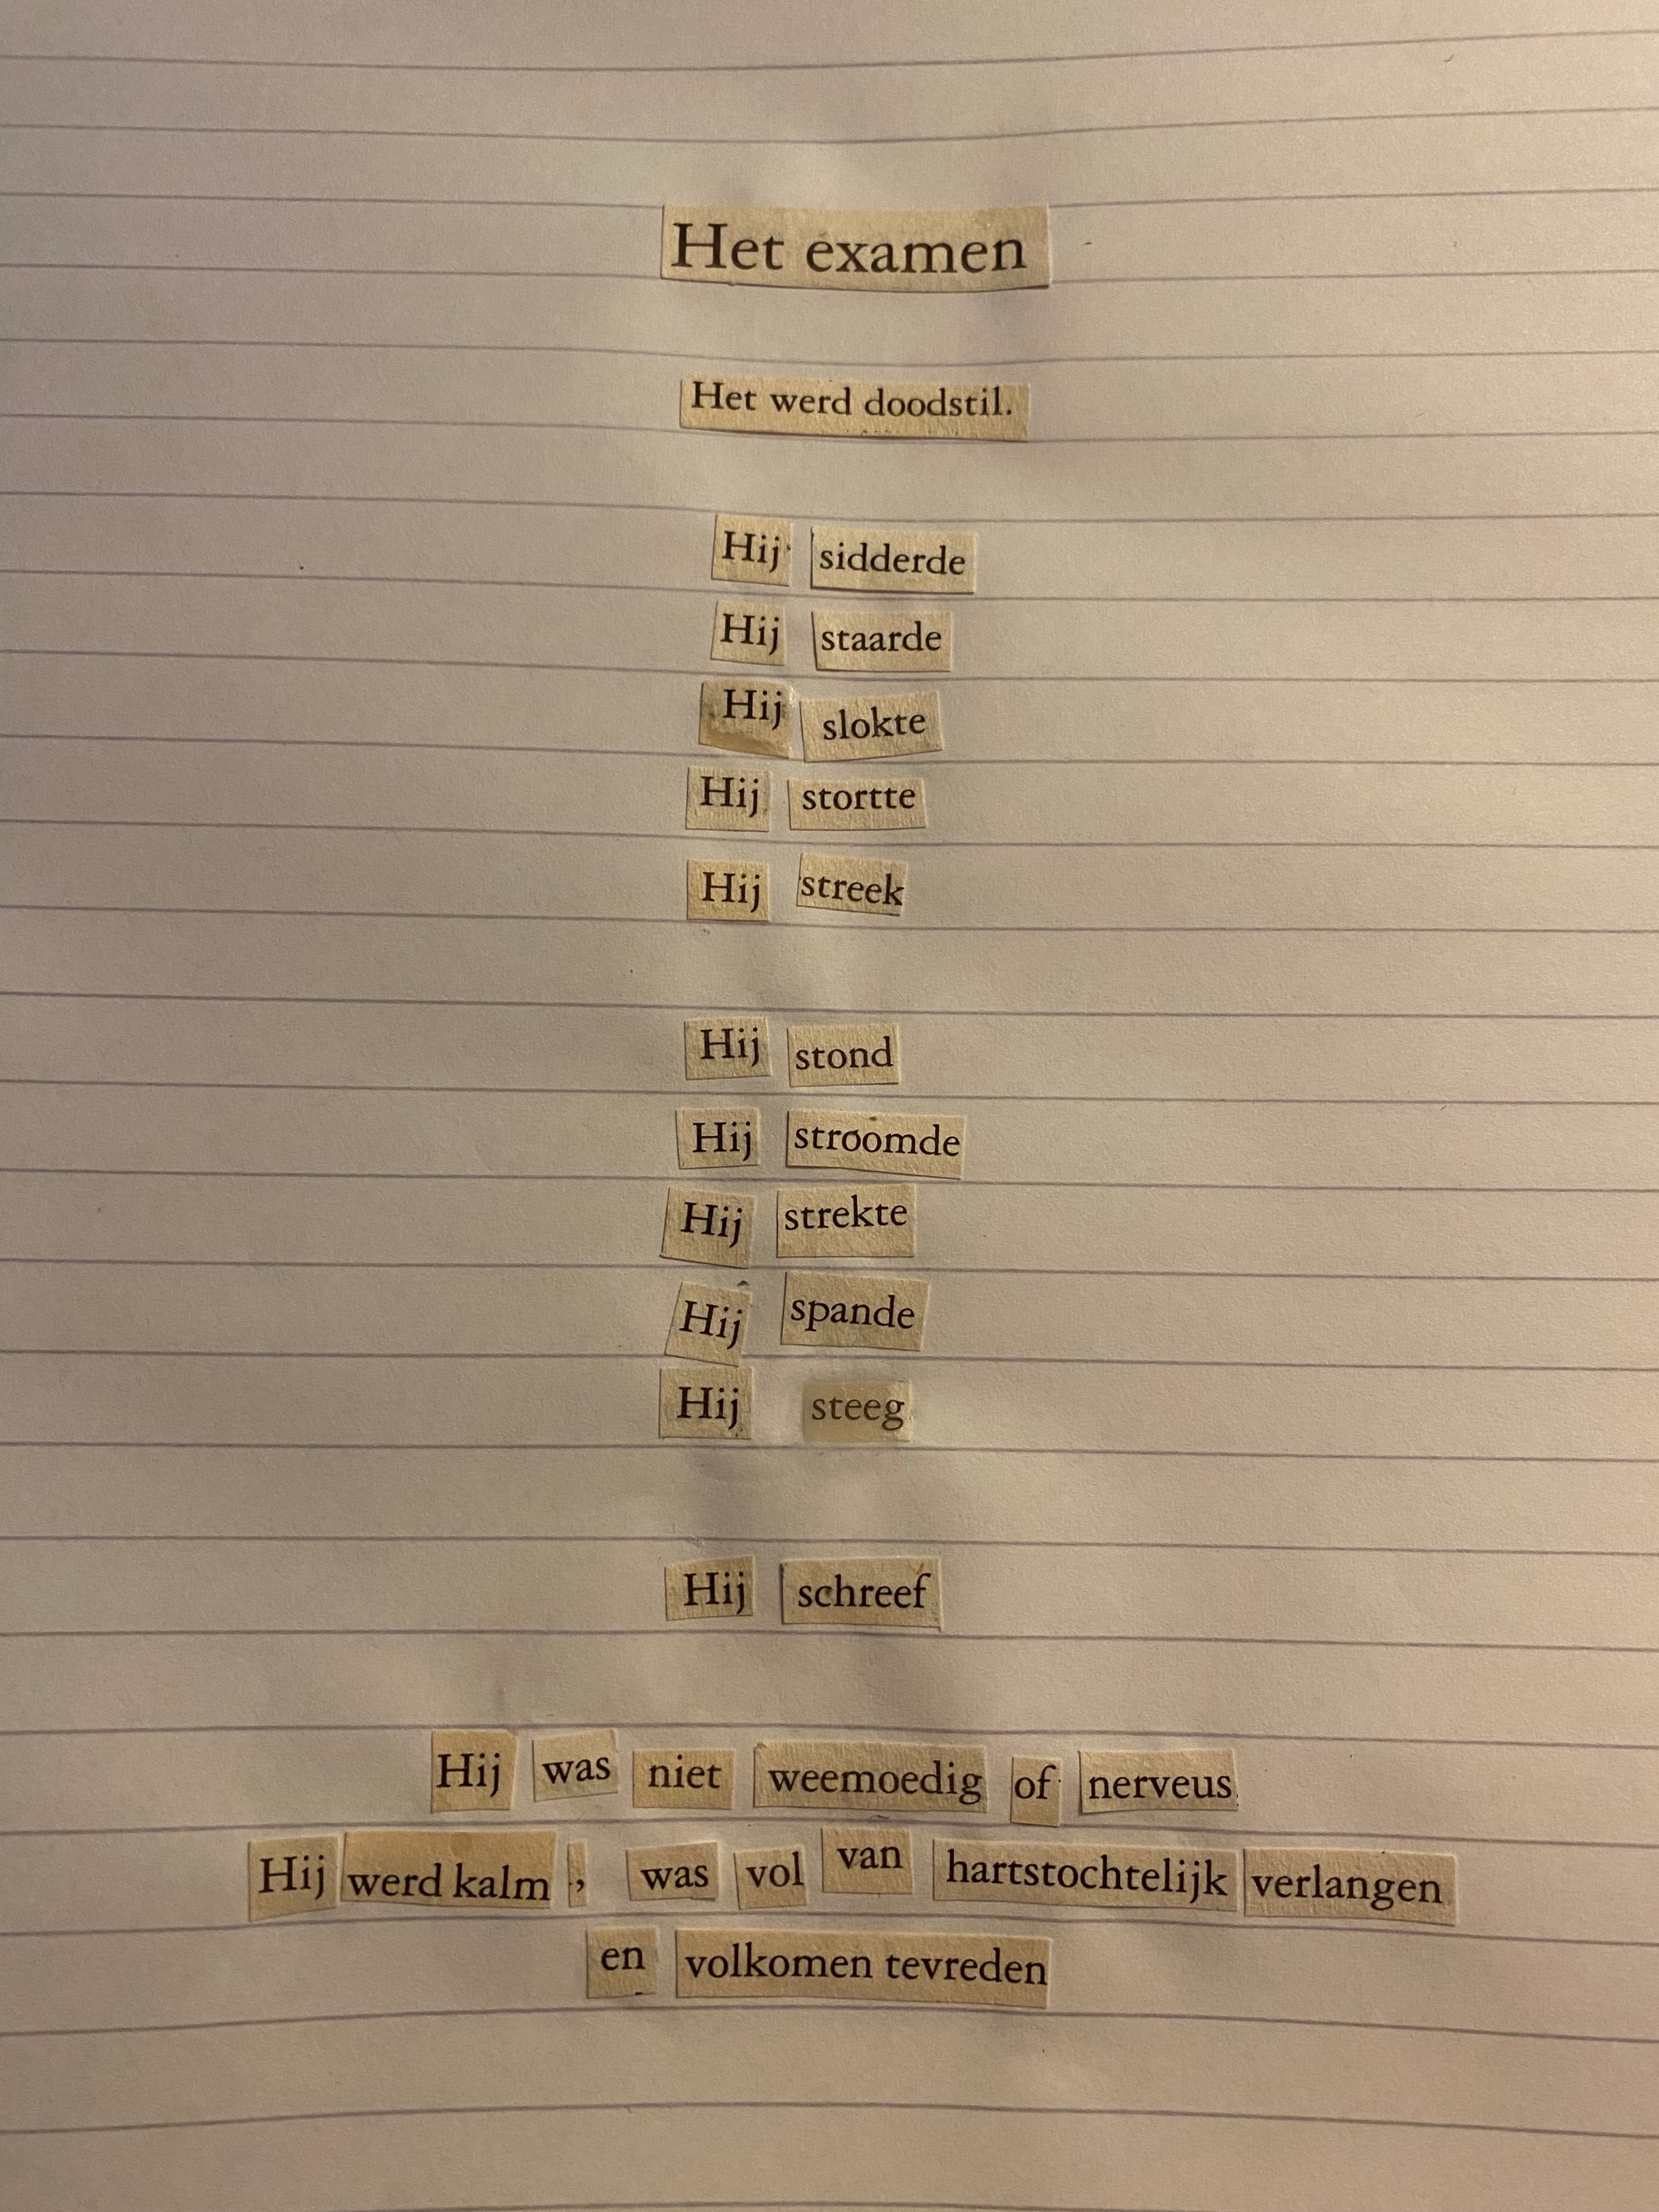 Het examen
Het werd doodstil.
Hij sidderde
Hij staarde
Hij slokte
Hij stortte
Hij streek
Hij stond
Hij stroomde
Hij strekte
Hij spande
Hij steeg
Hij schreef
Hij was niet weemoedig of nerveus
Hij werd kalm, was vol van hartstochtelijk verlangen
en volkomen tevreden